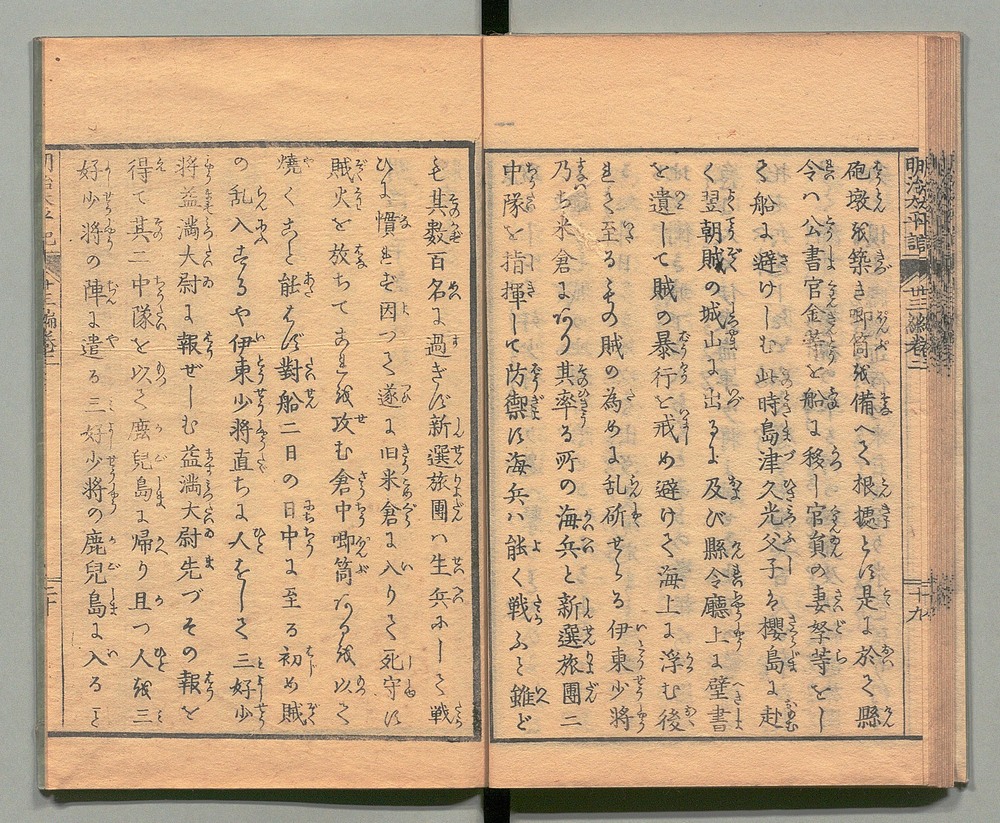 明治太平記 廿三編卷二 二十九
砲墩を築き喞筒を備へて根據とす是に於て縣
令ハ公書官金等を船に移し官員の妻孥等をし
て船に避けしむ此時島津久光父子ハ櫻島に赴
く翌朝賊の城山に出るに及び縣令廳上に壁書
を遺して賊の暴行を戒め避けて海上に浮む後
れて至るもの賊の為めに乱斫せらる伊東少將
乃ち米倉にあり其率る所の海兵と新選旅團二
中隊を指揮して防禦す海兵ハ能く戦ふと雖ど
も其数百名に過ぎず新選旅團ハ生兵にして戦
ひに慣れず因つて遂に旧米倉に入りて死守す
賊火を放ちてこれを攻む倉中喞筒あるを以て
燒くこと能はず對船二日の日中に至る初め賊
の乱入するや伊東少將直ちに人をして三好少
將益満大尉に報ぜしむ益満大尉先づその報を
得て其二中隊を以て鹿兒島に帰り且つ人を三
好少将の陣に遣る三好少将の鹿兒島に入ると
明治太平記 廿三編卷二 三十